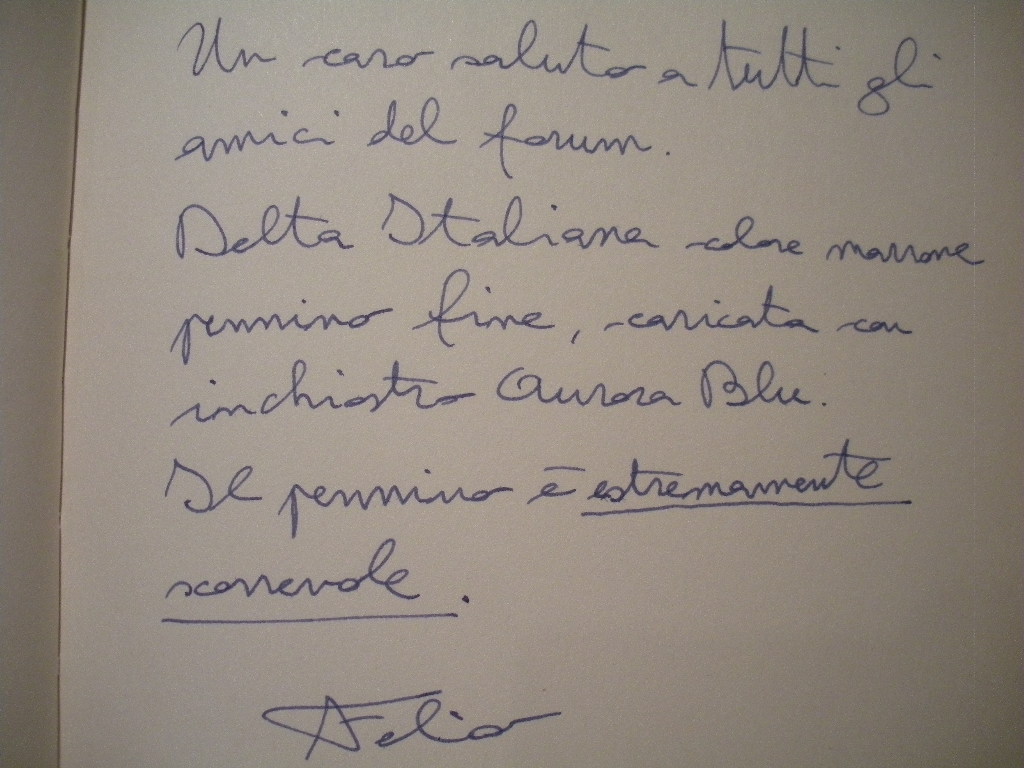 Un caro saluto a tutti gli
amici del forum.
Delta Italiana colore marrone
pennino fine, caricata con
inchiostro Aurora Blu.
Il pennino è estremamente
scorrevole.